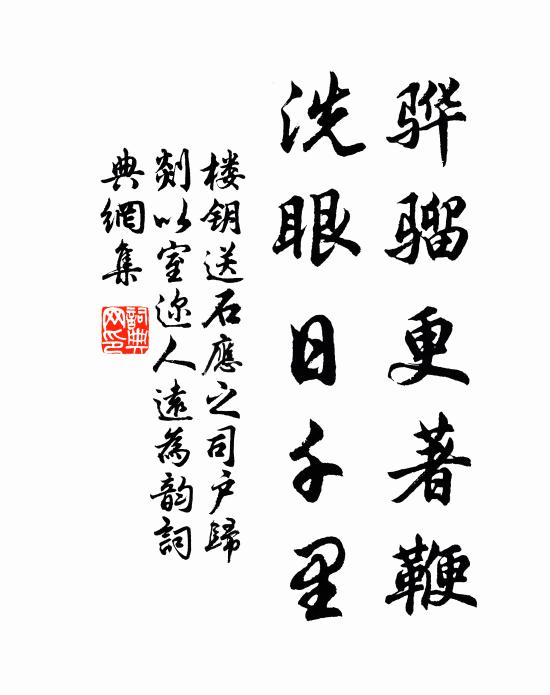 骅骝更著鞭
洗眼日千里
楼钥送石應之司户歸
剡以室迩人遠為韵詞
典網集
詞典网印